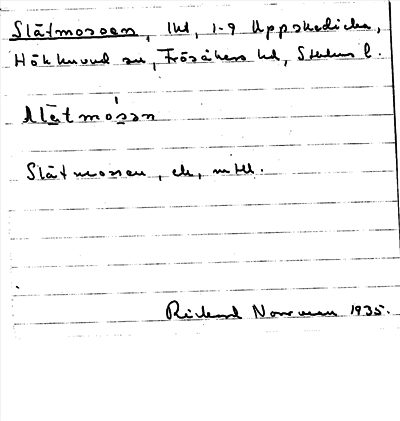 Slätmossen, lkl, 1-9 Uppskedika,
Hökhuvud sn, Frösåkers hd, Sthlms l.
slätmåssn
Slätmossen, ek, mtbl.
Rickard Norrman 1935.